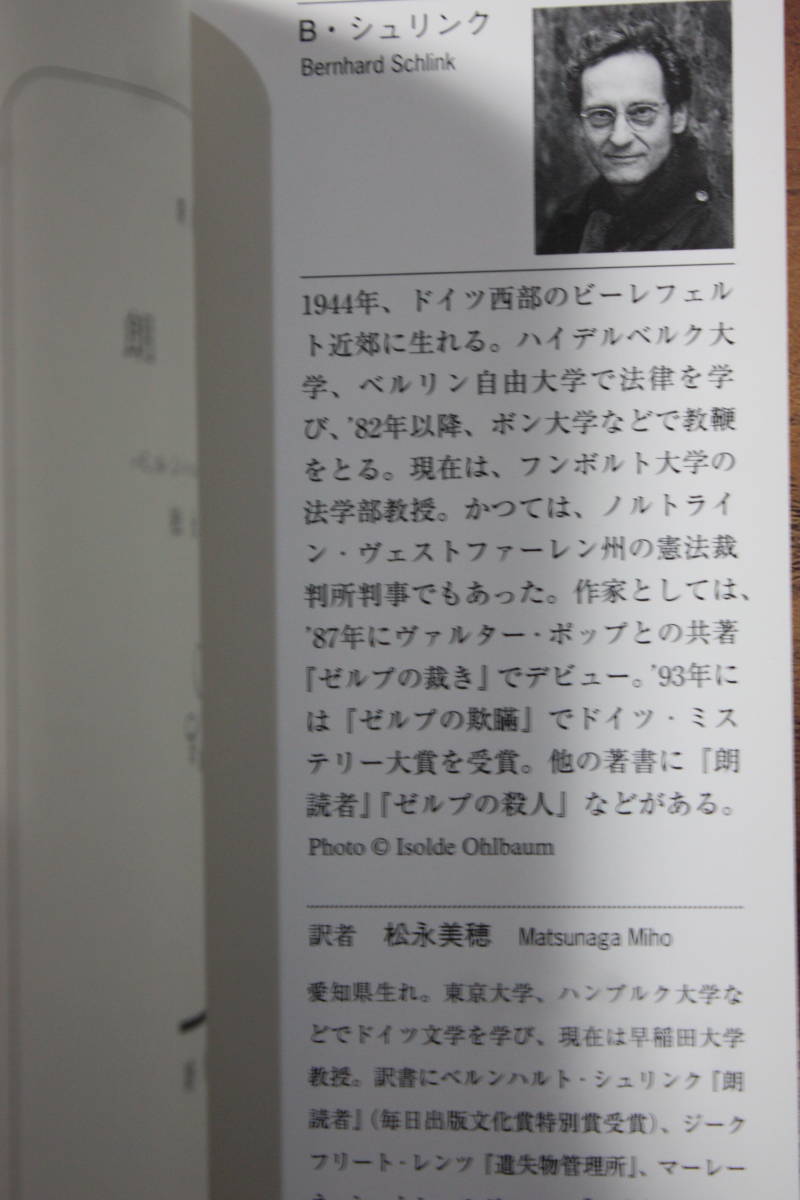 B・シュリンク
Bernhard Schlink
1944年、ドイツ西部のビーレフェル
ト近郊に生れる。ハイデルベルク大
学、ベルリン自由大学で法律を学
び、'82年以降、ボン大学などで教鞭
をとる。現在は、フンボルト大学の
法学部教授。かつては、ノルトライ
ン・ヴェストファーレン州の憲法裁
判所判事でもあった。作家としては、
'87年にヴァルター・ポップとの共著
『ゼルプの裁き』でデビュー。'93年に
は『ゼルプの欺瞞』でドイツ・ミス
テリー大賞を受賞。他の著書に『朗
読者』『ゼルプの殺人』などがある。
Photo © Isolde Ohlbaum
訳者 松永美穂 Matsunaga Miho
愛知県生れ。東京大学、ハンブルク大学な
どでドイツ文学を学び、現在は早稲田大学
教授。訳書にベルンハルト・シュリンク『朗
読者』(毎日出版文化賞特別賞受賞)、ジーク
フリート・レンツ『遺失物管理所』、マーレー
朗